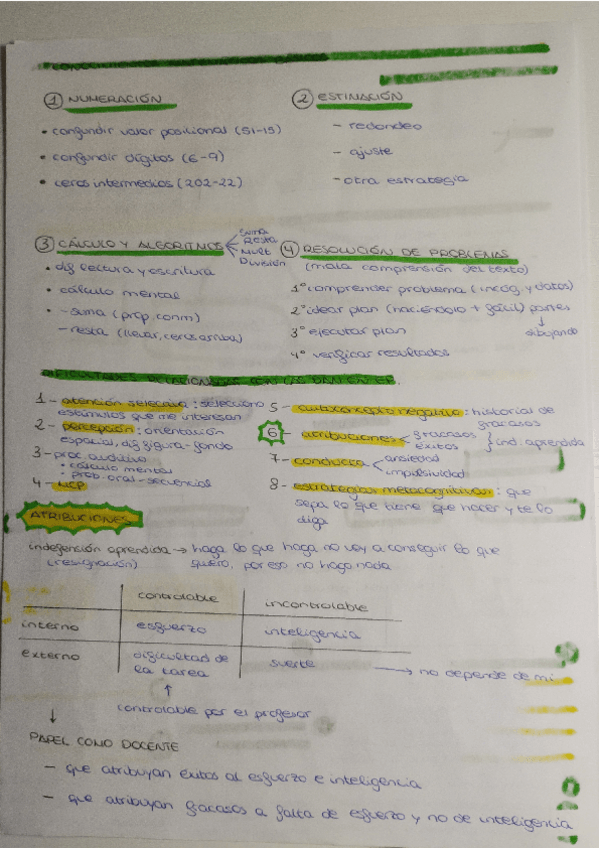 ① NUMERACIÓN
• confundir valor posicional (51-15)
• confundir dígitos (6-9)
• ceros intermedios (202-22)
② ESTIMACIÓN
- redondeo
- ajuste
- otra estrategia
③ CÁLCULO Y ALGORITMOS
Suma
Resta
Mult
División
• dif lectura y escritura
• cálculo mental
• - suma (prop. conm)
- resta (llevar, ceros arriba)
④ RESOLUCIÓN DE PROBLEMAS
(mala comprensión del texto)
1º comprender problema (incóg. y datos)
2º idear plan (haciéndolo + fácil) partes
↓
dibujando
3º ejecutar plan
4º verificar resultados
DIFICULTADES RELACIONADAS CON LAS
1 - atención selectiva: selecciono
estímulos que me interesan
2 - percepción: orientación
espacial, dif figura-fondo
3 - proc. auditivo
• cálculo mental
• prob. oral - secuencias
4 - MCP
5 - autoconcepto negativo: historial de
fracasos
6 - atribuciones < fracasos
éxitos } ind. aprendida
7 - conducta < ansiedad
impulsividad
8 - estrategias metacognitivas: que
sepa lo que tiene que hacer y te lo
diga
ATRIBUCIONES
indefensión aprendida → haga lo que haga no voy a conseguir lo que
(resignación) quiero, por eso no hago nada
controlable incontrolable
interno esfuerzo inteligencia
externo dificultad de
la tarea suerte → no depende de mi
↑
controlable por el profesor
↓
PAPEL COMO DOCENTE
- que atribuyan éxitos al esfuerzo e inteligencia
- que atribuyan fracasos a falta de esfuerzo y no de inteligencia